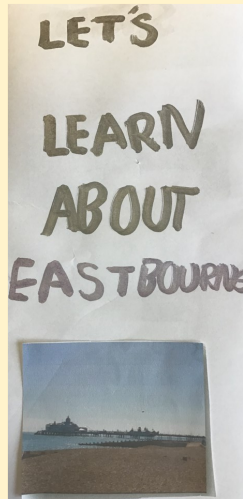 LET'S
LEARN
ABOUT
EASTBOURNE